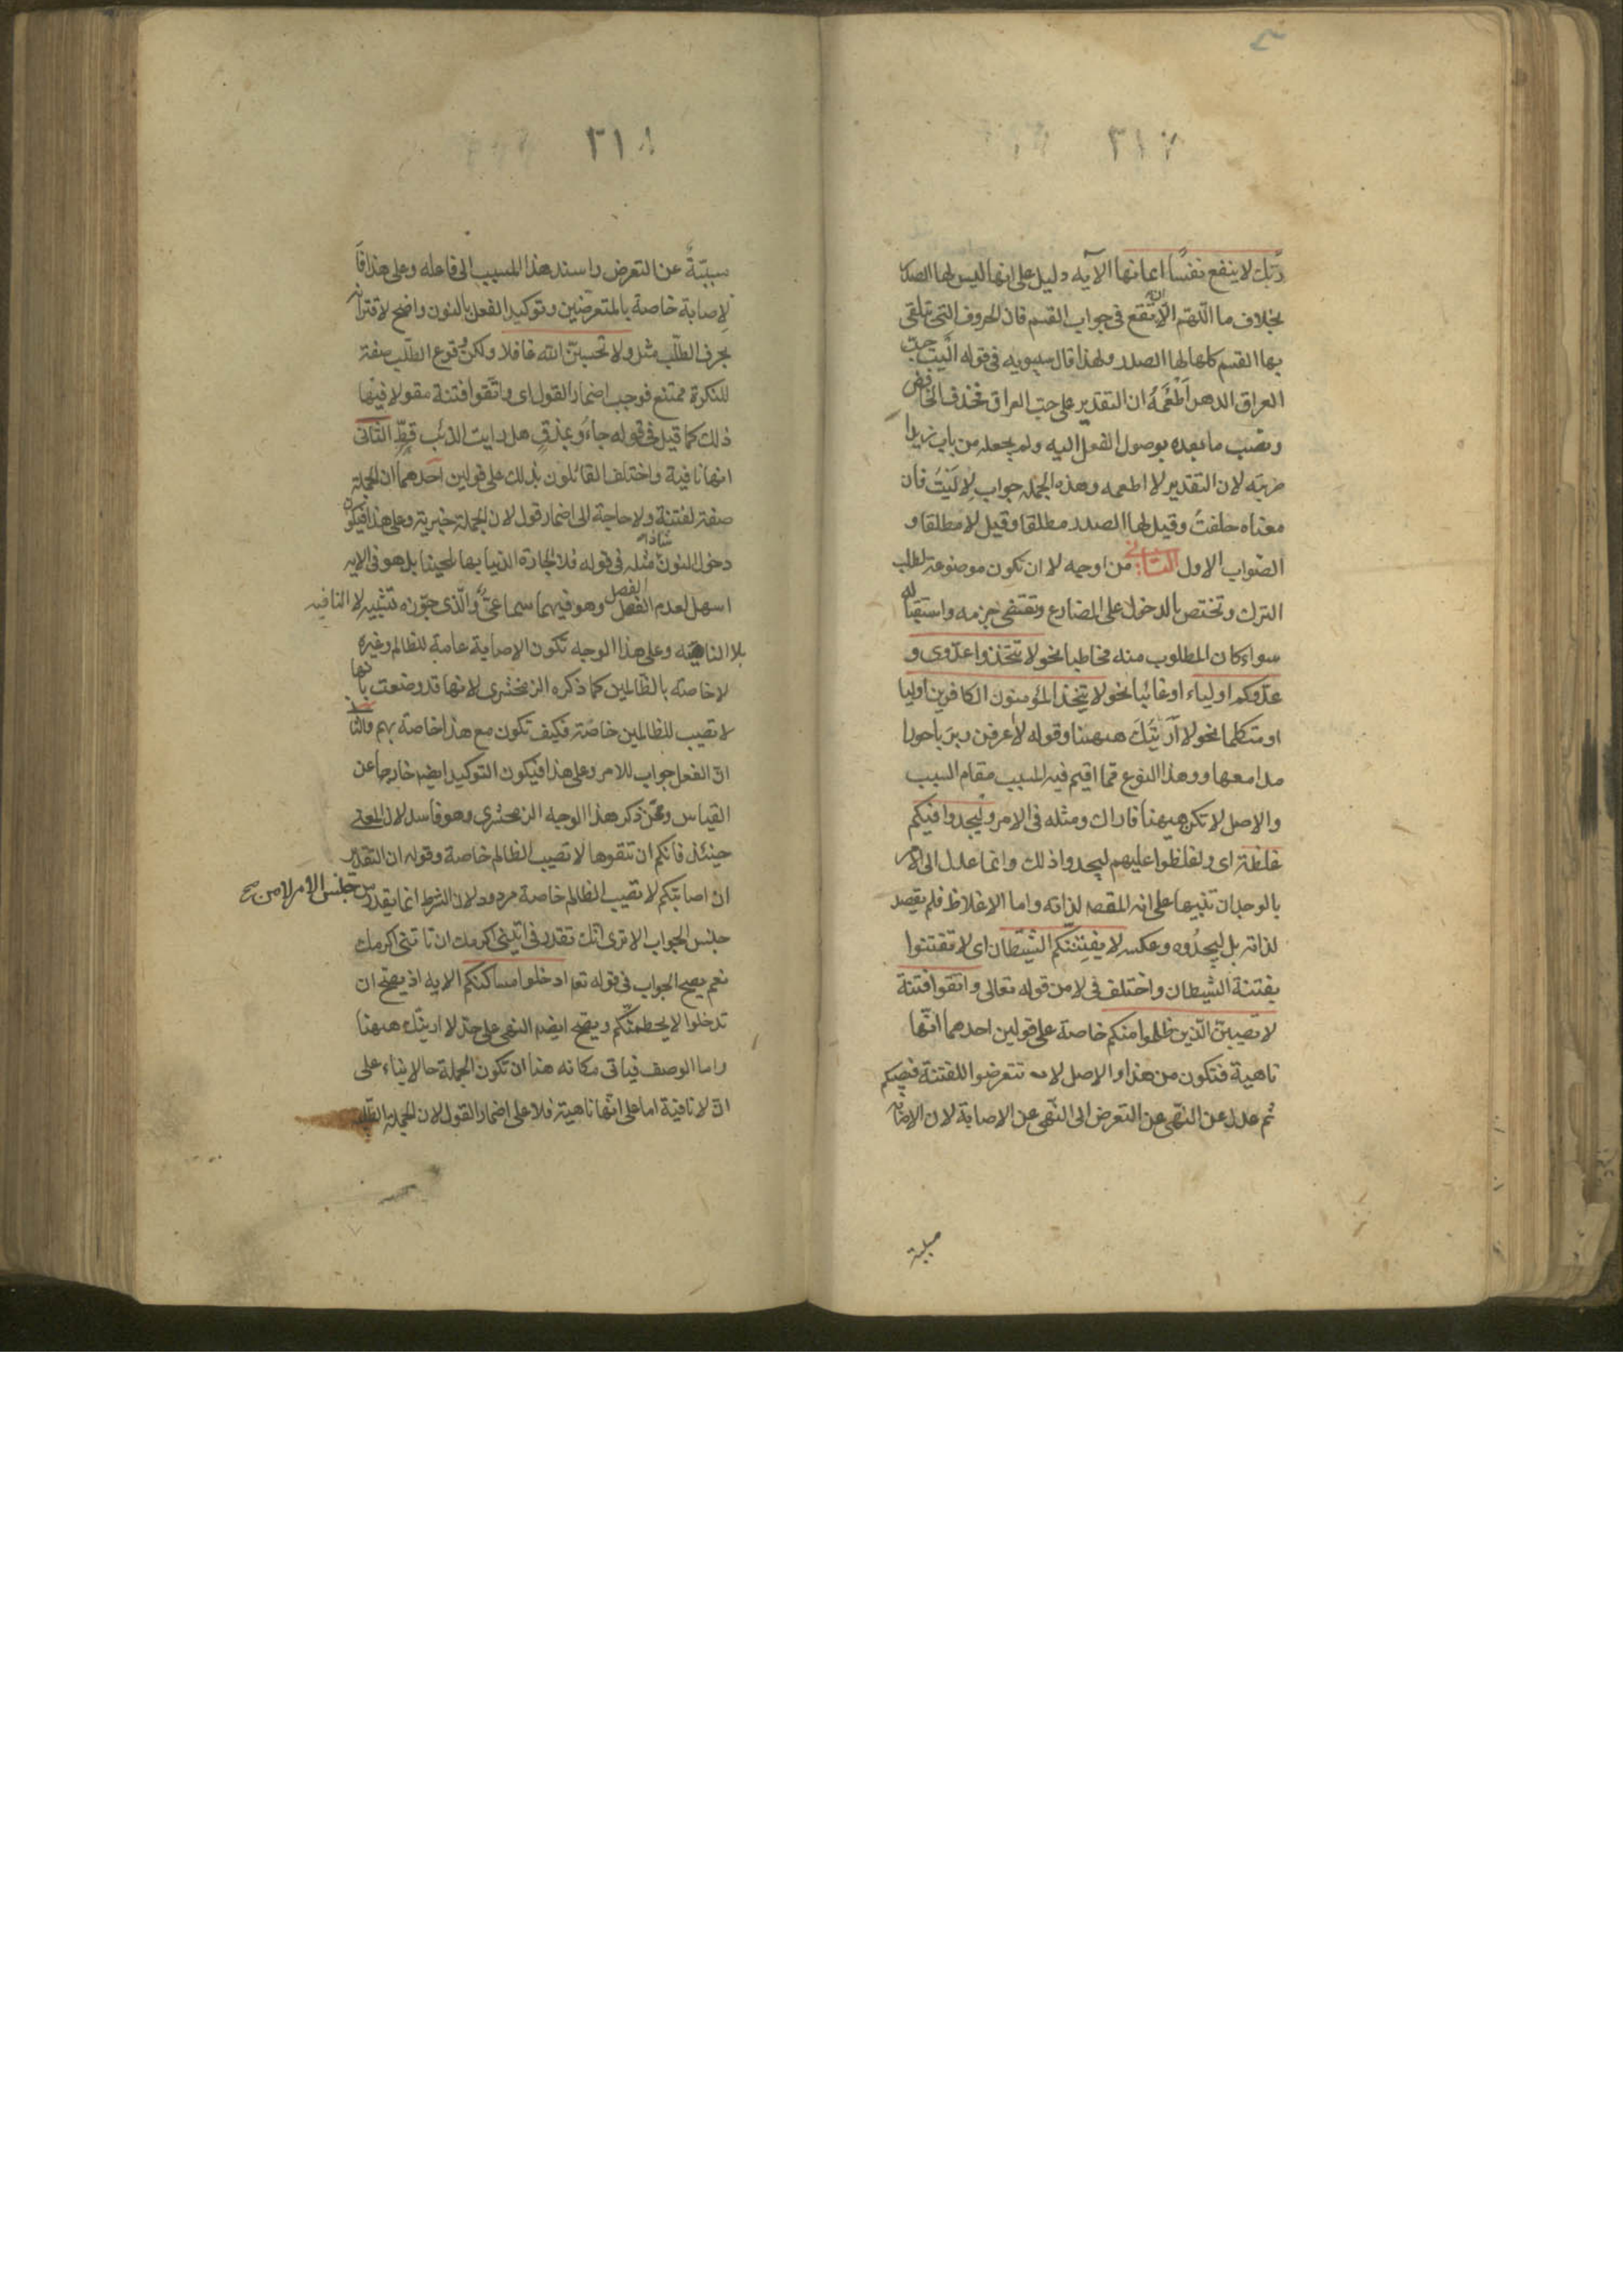 ٣١٧
ربّك لا ينفع نفسًا ايمانها الآيه دليل على انها ليس لها الصدر
بخلاف ما اللّهمّ الّا ان تقع فى جواب القسم فان الحروف التى تتلقى
بها القسم كلها لها الصدر ولهذا قال سيبويه فى قوله آليت حبّ
العراق الدهر اَطْعَمُهُ ان التقدير على حبّ العراق فحذف الخافض
ونصب ما بعده بوصول الفعل اليه ولم يجعله من باب زيدا
ضربته لان التقدير لا اطعمه وهذه الجمله جواب لاٰليْتُ فان
معناه حلفتُ وقيل لها الصدر مطلقا وقيل لا مطلقا و
الصّواب الاول الثانى من اوجه لا ان تكون موضوعة لطلب
الترك وتختص بالدخول على المضارع وتقتضى جزمه واستقباله
سواء كان المطلوب منه مخاطبا نحو لا تتّخذوا عدّوى و
عدّوكم اولياء او غائبا نحو لا يتّخذ المؤمنون الكافرين اوليا
او متكلما نحو لا اَرَيَنّك ههنا وقوله لا اعرفن ربربا حورا
مدامعها وهذا النوع ممّا اقيم فيه المسبب مقام السبب
والاصل لا تكن ههنا فاراك ومثله فى الامر وليجدوا فيكم
غلظة اى واغلظوا عليهم ليجدوا ذلك وانما عدل الى الامر
بالوجدان تنبيها على انه المقصد لذاته واما الاغلاظ فلم يقصد
لذاته بل ليجدُوه وعكسه لا يفتِننّكم الشيطان اى لا تفتتنوا
بفتنة الشيطان واختلف فى لا من قوله تعالى واتّقوا فتنة
لا تصيبنّ الّذين ظلموا منكم خاصة على قولين احدهما انّها
ناهية فتكون من هذا والاصل لا تتعرضوا للفتنة فتصيبكم
ثم عدل عن النّهى عن التعرض الى النّهى عن الاصابة لان الاصابه
٣١٨
سببّيةٌ عن التعرض واسند هذا المسبب الى فاعله وعلى هذا فا
لاصابة خاصة بالمتعرضين وتوكيد الفعل بالنون واضح لاقترانه
بحرف الطلب مثل ولا تحسبنّ الله غافلا ولكن وقوع الطلب صفة
للنكرة ممتنع فوجب اضمار القول اى واتّقوا فتنة مقولا فيها
ذلك كما قيل فى قوله جاءُوا بمذقٍ هل رايت الذئب قطّ الثّانى
انها نافية واختلف القائلون بذلك على قولين احدهما ان الجملة
صفة لفتنة ولا حاجة الى اضمار قول لان الجملة خبرية وعلى هذا فيكون
دخول النون شاذا مثله فى قوله فلا الجارة الدنيا بها تلحينا بل هو فى الايه
اسهل لعدم الفصل وهو فيهما سماعىّ والّذى جوّزه تشبيه لا النافيه
بلا الناهية وعلى هذا الوجه تكون الاصابة عامة للظالم وغيره
لا خاصة بالظالمين كما ذكره الزمخشرى لانها قد وصفت بانّها
لا تصيب للظالمين خاصة فكيف تكون مع هذا خاصة بهم والثا
انّ الفعل جواب للامر وعلى هذا فيكون التوكيد ايضا خارجا عن
القياس وممّن ذكر هذا الوجه الزمخشرى وهو فاسد لان المعنى
حينئذ فانكم ان تتقوها لا تصيب الظالم خاصة وقوله ان التقدير
ان اصابتكم لا تصيب الظالم خاصة مردود لان الشرط انما يقدر من جنس الامر لا من
جنس الجواب الا ترى انّك تقدر فى ائتنى اكرمك ان تاتنى اكرمك
نعم يصح الجواب فى قوله تعا ادخلوا مساكنكم الايه اذ يصح ان
تدخلوا لا يحطمنّكم ويصح ايضا النهى على حدّ لا ارينّك ههنا
واما الوصف فياتى مكانه هنا ان تكون الجملة حالا بناء على
انّ لا نافية اما على انّها ناهية فلا على اضمار القول لان الجملة الطّلبية